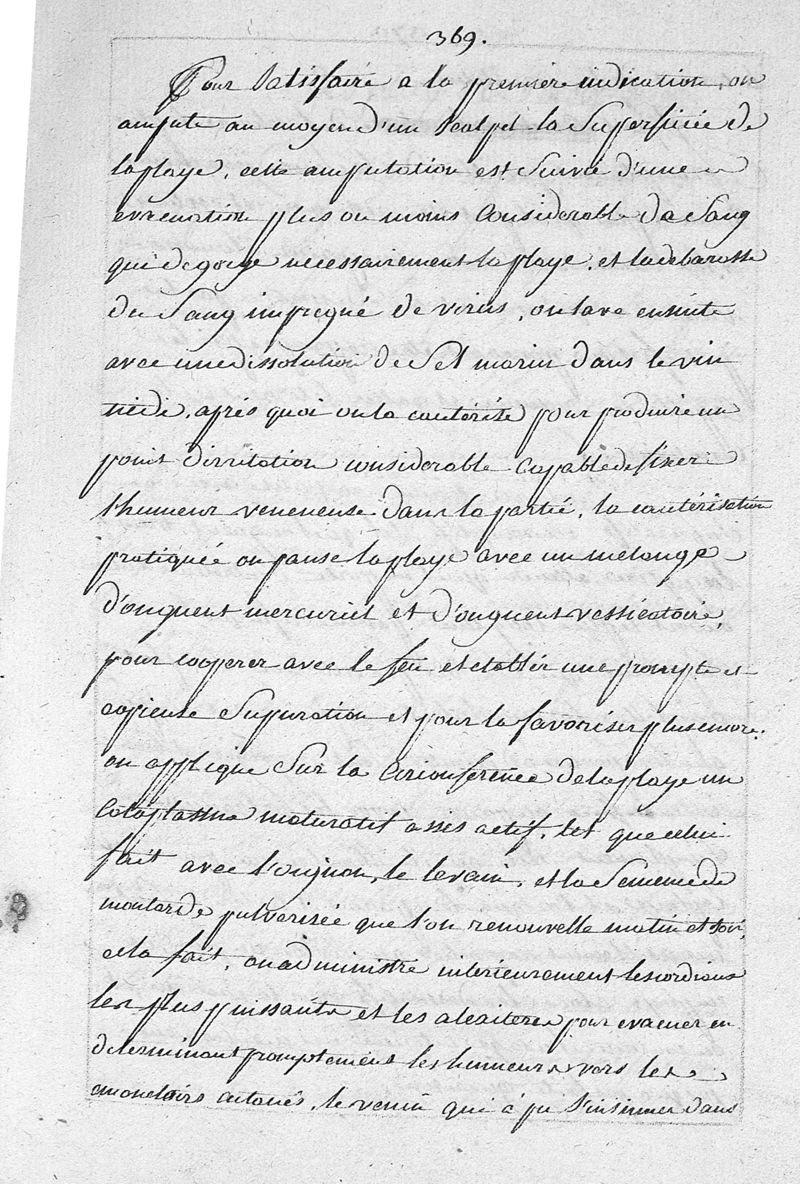 369.
Pour Satisfaire a la premiere indication, on
ampute au moyen d'un Scalpel la Superficiée de
la playe, cette amputation est Suivie d'une
evacuation plus ou moins Considerable de Sang
qui degorge necessairement la playe, et la debarasse
du Sang impregné de virus, on lave ensuite
avec une dissolution de Sel marin dans le vin
tiede, après quoi on la cautérise pour produire un
point d'irritation considerable capable de fixer
l'humeur veneneuse dans la partié, la cautérisation
pratiquée on panse la playe avec un melange
d'onguent mercuriel et d'onguent vessicatoire,
pour cooperer avec le feu et etablir une prompte et
copieuse Supuration et pour la favoriser plus encore.
on applique Sur la Circonférence de la playe un
Cataplasme maturatif assés actif, tel que celui
fait avec l'ougnon, le levain, et la Semence de
moutarde pulvarisée que l'on renouvelle matin et Soir
cela fait, on administre interieurement les cordiaux
les plus puissants et les alexiteres pour evacuer en
determinant promptement les humeurs vers les
emonctoirs cutanés, le venin qui à pu S'insinuer dans